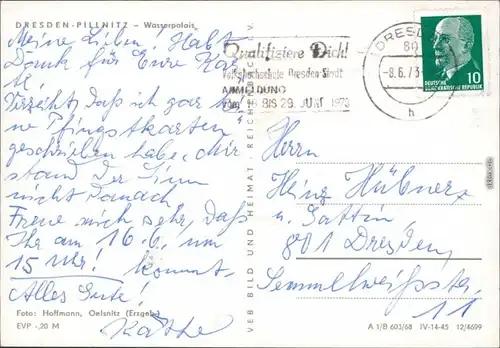 DRESDEN-PILLNITZ – Wasserpalais
Meine Lieben! Habt
Dank für Eure Kar-
te!
Verzeiht, daß ich gar kei-
ne Pfingstkarten
geschrieben habe, mir
stand der Sinn
nicht danach
Freue mich sehr, daß
Ihr am 16.6. um
15 Uhr! kommt.
Alles Gute!
Käthe
Foto: Hoffmann, Oelsnitz (Erzgeb.)
EVP -,20 M
VEB BILD UND HEIMAT · REICHENBACH
Qualifiziere Dich!
Volkshochschule Dresden-Stadt
ANMELDUNG
vom 18 BIS 29. JUNI 1973
DRESDEN
80
-8.6.73
h
DEUTSCHE
DEMOKRATISCHE REPUBLIK
10
Herrn
Heinz Hübner
u. Gattin,
801 Dresden,
Semmelweißstr.
11
A 1/B 603/68 IV-14-45 12/4699